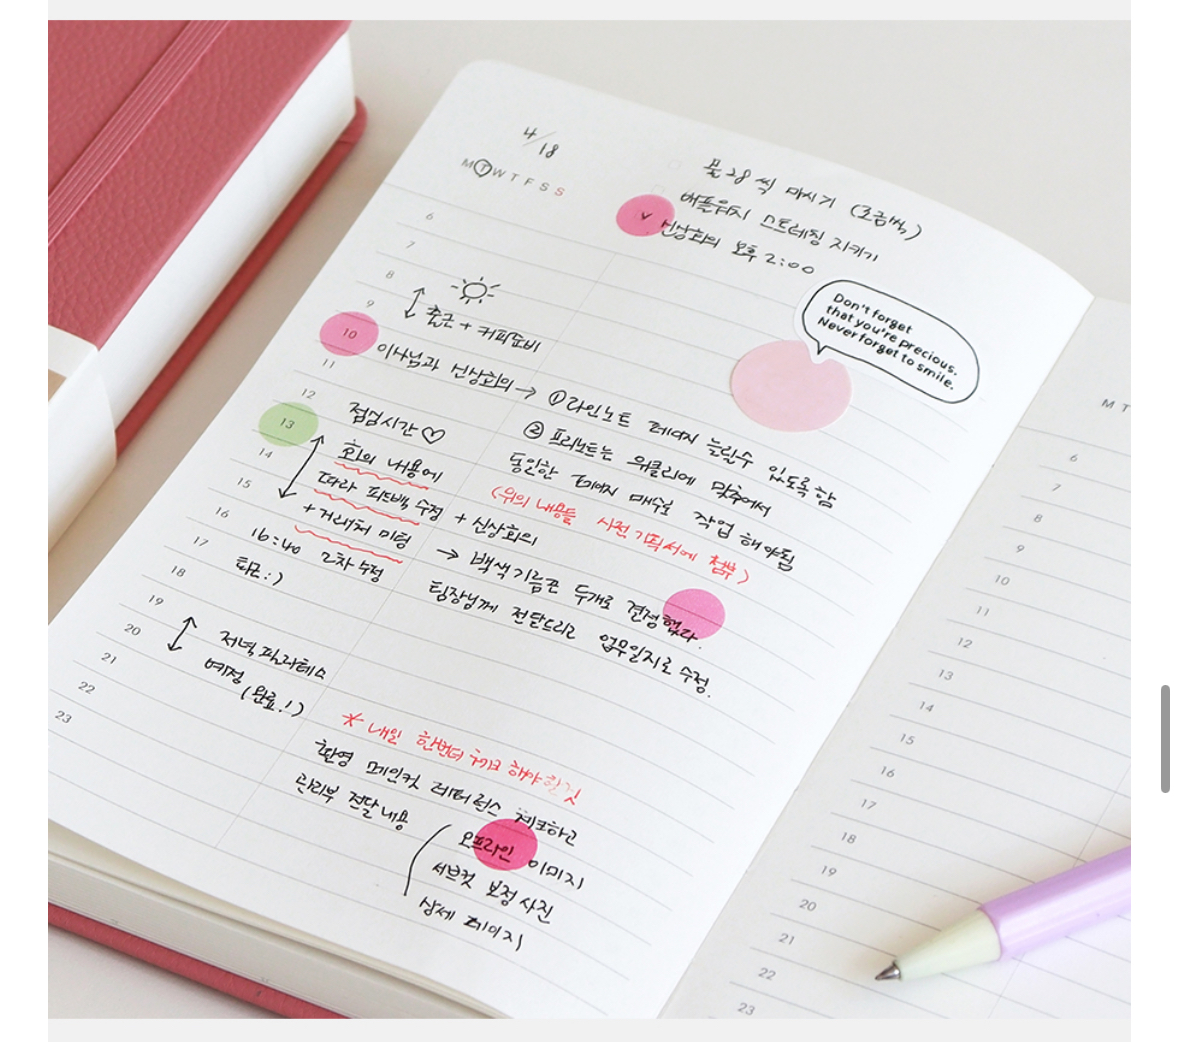 4/18
M T W T F S S
물 2컵씩 마시기 (조금씩)
스트레칭 지키기
신상회의 오후 2:00
Don't forget
that you're precious.
Never forget to smile.
6
7
8
9
출근 + 커피준비
10
이사님과 신상회의 → ① 라인노트 페이지 늘릴수 있도록 함
11
② 프리노트는 위클리에 맞춰서
12
점심시간 ♡
동일한 페이지 매수로 작업 해야됨
13
회의 내용에
(위의 내용들 사전기획서에 첨부)
14
따라 피드백 수정 + 신상회의
15
+ 거래처 미팅
→ 백색기름끈 두개로 결정했다.
16
16:40 2차 수정
팀장님께 전달드리고 업무일지로 수정.
17
퇴근 :)
18
19
20
저녁 필라테스
21
예정 (완료!)
22
23
* 내일 한번더 체크 해야 할것
촬영 메인컷 레퍼런스 체크하고
관리부 전달내용
오프라인 이미지
서브컷 보정 사진
상세 페이지
M T
6
7
8
9
10
11
12
13
14
15
16
17
18
19
20
21
22
23